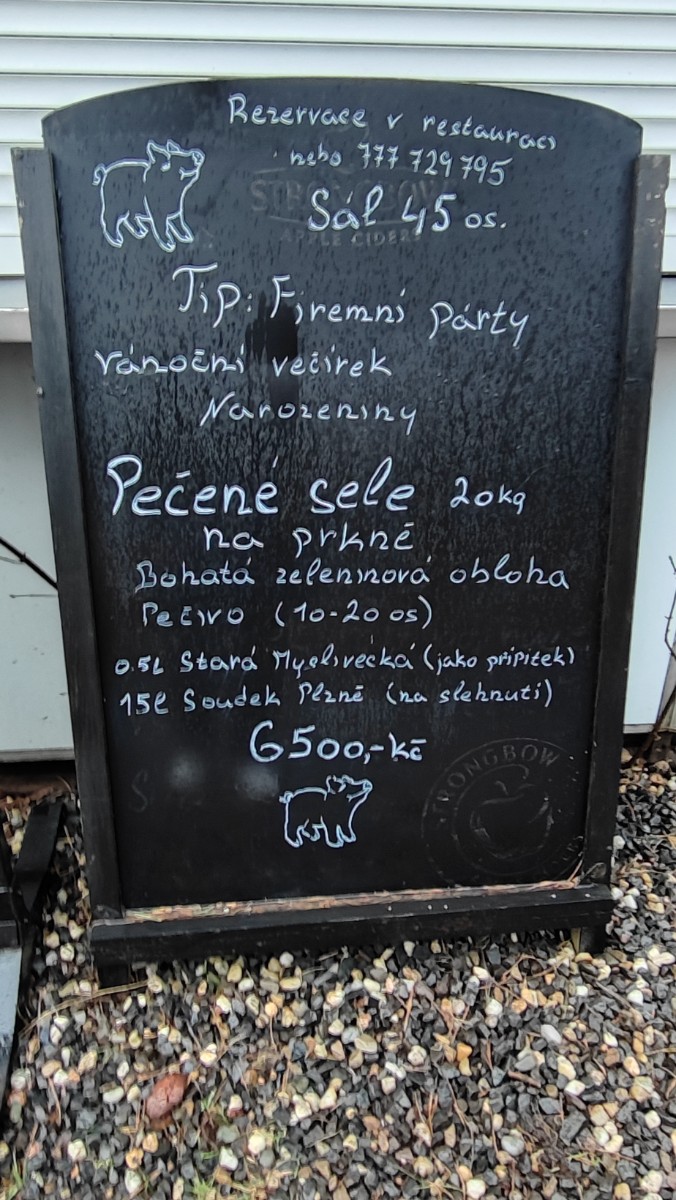 Rezervace v restauraci
nebo 777 729 795
STRONGBOW
APPLE CIDERS
Sál 45 os.
Tip: Firemní párty
vánoční večírek
Narozeniny
Pečené sele 20kg
na prkně
Bohatá zeleninová obloha
Pečivo (10-20 os)
0.5L Stará Myslivecká (jako přípitek)
15l Soudek Plzně (na slehnutí)
6500,-kč
STRONGBOW